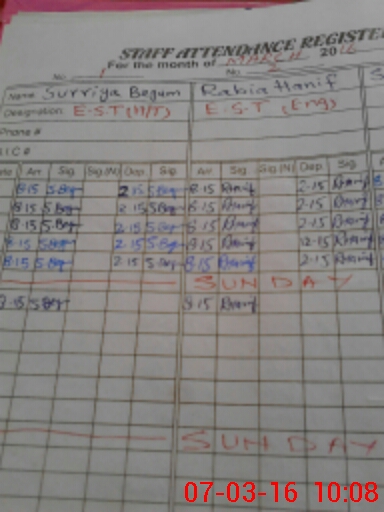 STAFF ATTENDANCE REGISTER
For the month of MARCH 2016
No. No.
Name Surriya Begum Rabia Hanif
Designation E.S.T (H/T) E.S.T (Eng)
Phone #
Arr. Sig. Sig.(N) Dep. Sig. Arr. Sig. Sig.(N) Dep. Sig.
8.15 S.Beg 2.15 S.Beg 8.15 2.15
8.15 S.Beg 2.15 S.Beg 8.15 2.15
8.15 S.Beg 2.15 S.Beg 8.15 2.15
8.15 S.Beg 2.15 S.Beg 8.15 12.15
8.15 S.Beg 2.15 S.Beg 8.15 2.15
SUNDAY
8.15 S.Beg 8.15
SUNDAY
07-03-16 10:08